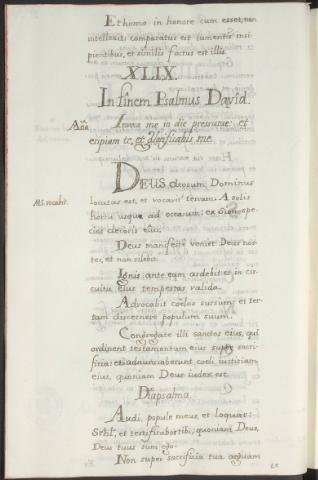 Et homo in honore cum esset, non
intellexit: comparatus est iumentis insi-
pientibus, et similis factus est illis.
XLIX.
In finem Psalmus David.
Aña Invoca me in die pressurae: et
eripiam te, et glorificabis me.
DEUS deorum Dominus
Ms. locutus est, et vocavit terram. A solis
hortu usque ad occasum: ex Sion spe-
cies decoris eius:
Deus manifeste veniet Deus nos-
ter, et non silebit.
Ignis ante eum ardebit et in cir-
cuitu eius tempestas valida.
Advocabit coelos sursum: et ter-
ram discernere populum suum.
Congregate illi sanctos eius, qui
ordinent testamentum eius super sacri-
ficia: et adnunciabunt coeli iustitiam
eius, quoniam Deus iudex est.
Diapsalma.
Audi, popule meus, et loquar:
et testificabor tibi, quoniam Deus,
Deus tuus sum ego.
Non super sacrificia tua arguam